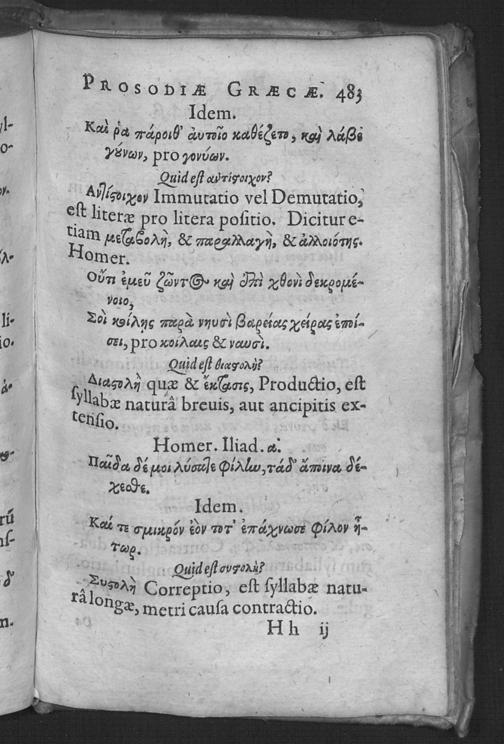 PROSODIÆ GRÆCÆ. 483
Idem.
Καὶ ῥα πάροιθ' αὐτοῖο καθέζετο, καὶ λάβε
γούνων, pro γονύων.
Quid est ἀντίστοιχον?
Ἀντίστοιχον Immutatio vel Demutatio,
est literæ pro litera positio. Dicitur e-
tiam μεταβολὴ, & παραλλαγὴ, & ἀλλοιότης.
Homer.
Οὔτι ἐμεῦ ζῶντος καὶ ἐπὶ χθονὶ δεκρομέ-
νοιο,
Σοὶ κοίλης παρὰ νηυσὶ βαρείας χεῖρας ἐποί-
σει, pro κοιλαις & ναυσι.
Quid est διαστολή?
Διαστολὴ quæ & ἔκτασις, Productio, est
syllabæ naturâ breuis, aut ancipitis ex-
tensio.
Homer. Iliad. α.
Παῖδα δέ μοι λύσατε φίλην, τάδ' ἄποινα δέ-
χεσθε.
Idem.
Καί τε σμικρόν ἐὸν τοτ' ἐπάχνωσε φίλον ἦ-
τωρ.
Quid est συστολὴ?
Συστολὴ Correptio, est syllabæ natu-
râ longæ, metri causa contractio.
Hh ij